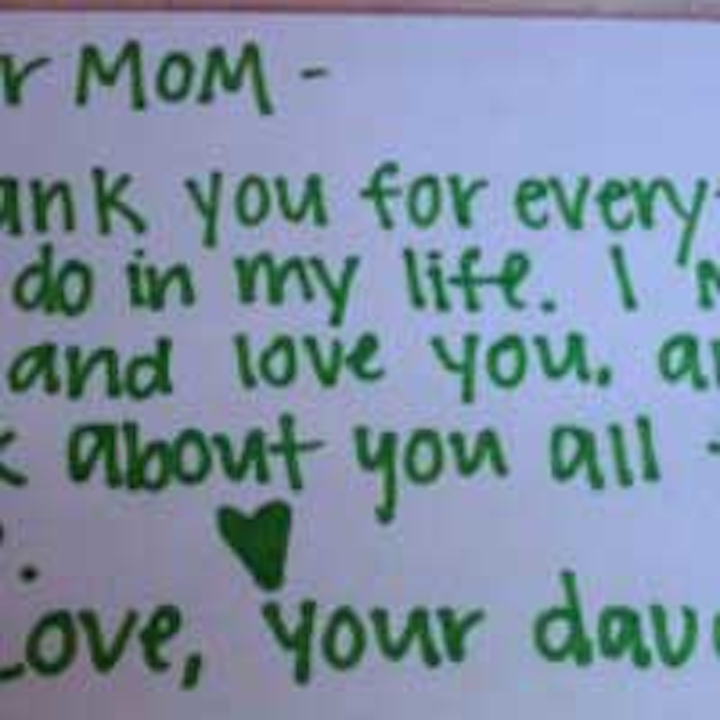 r MOM -
ank you for every
do in my life. I
and love you. a
k about you all
.
Love, your dau